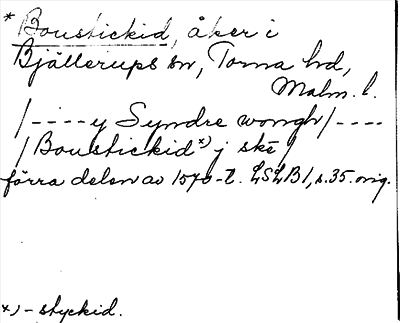 * Boustickid, åker i
Bjällerups sn, Torna hd,
Malm. l.
/ - - - - y Syndre wongh / - - - -
/ Boustickid *) j ske /
förra delen av 1570-t. LSLB 1, s. 35. orig.
*) - styckid.